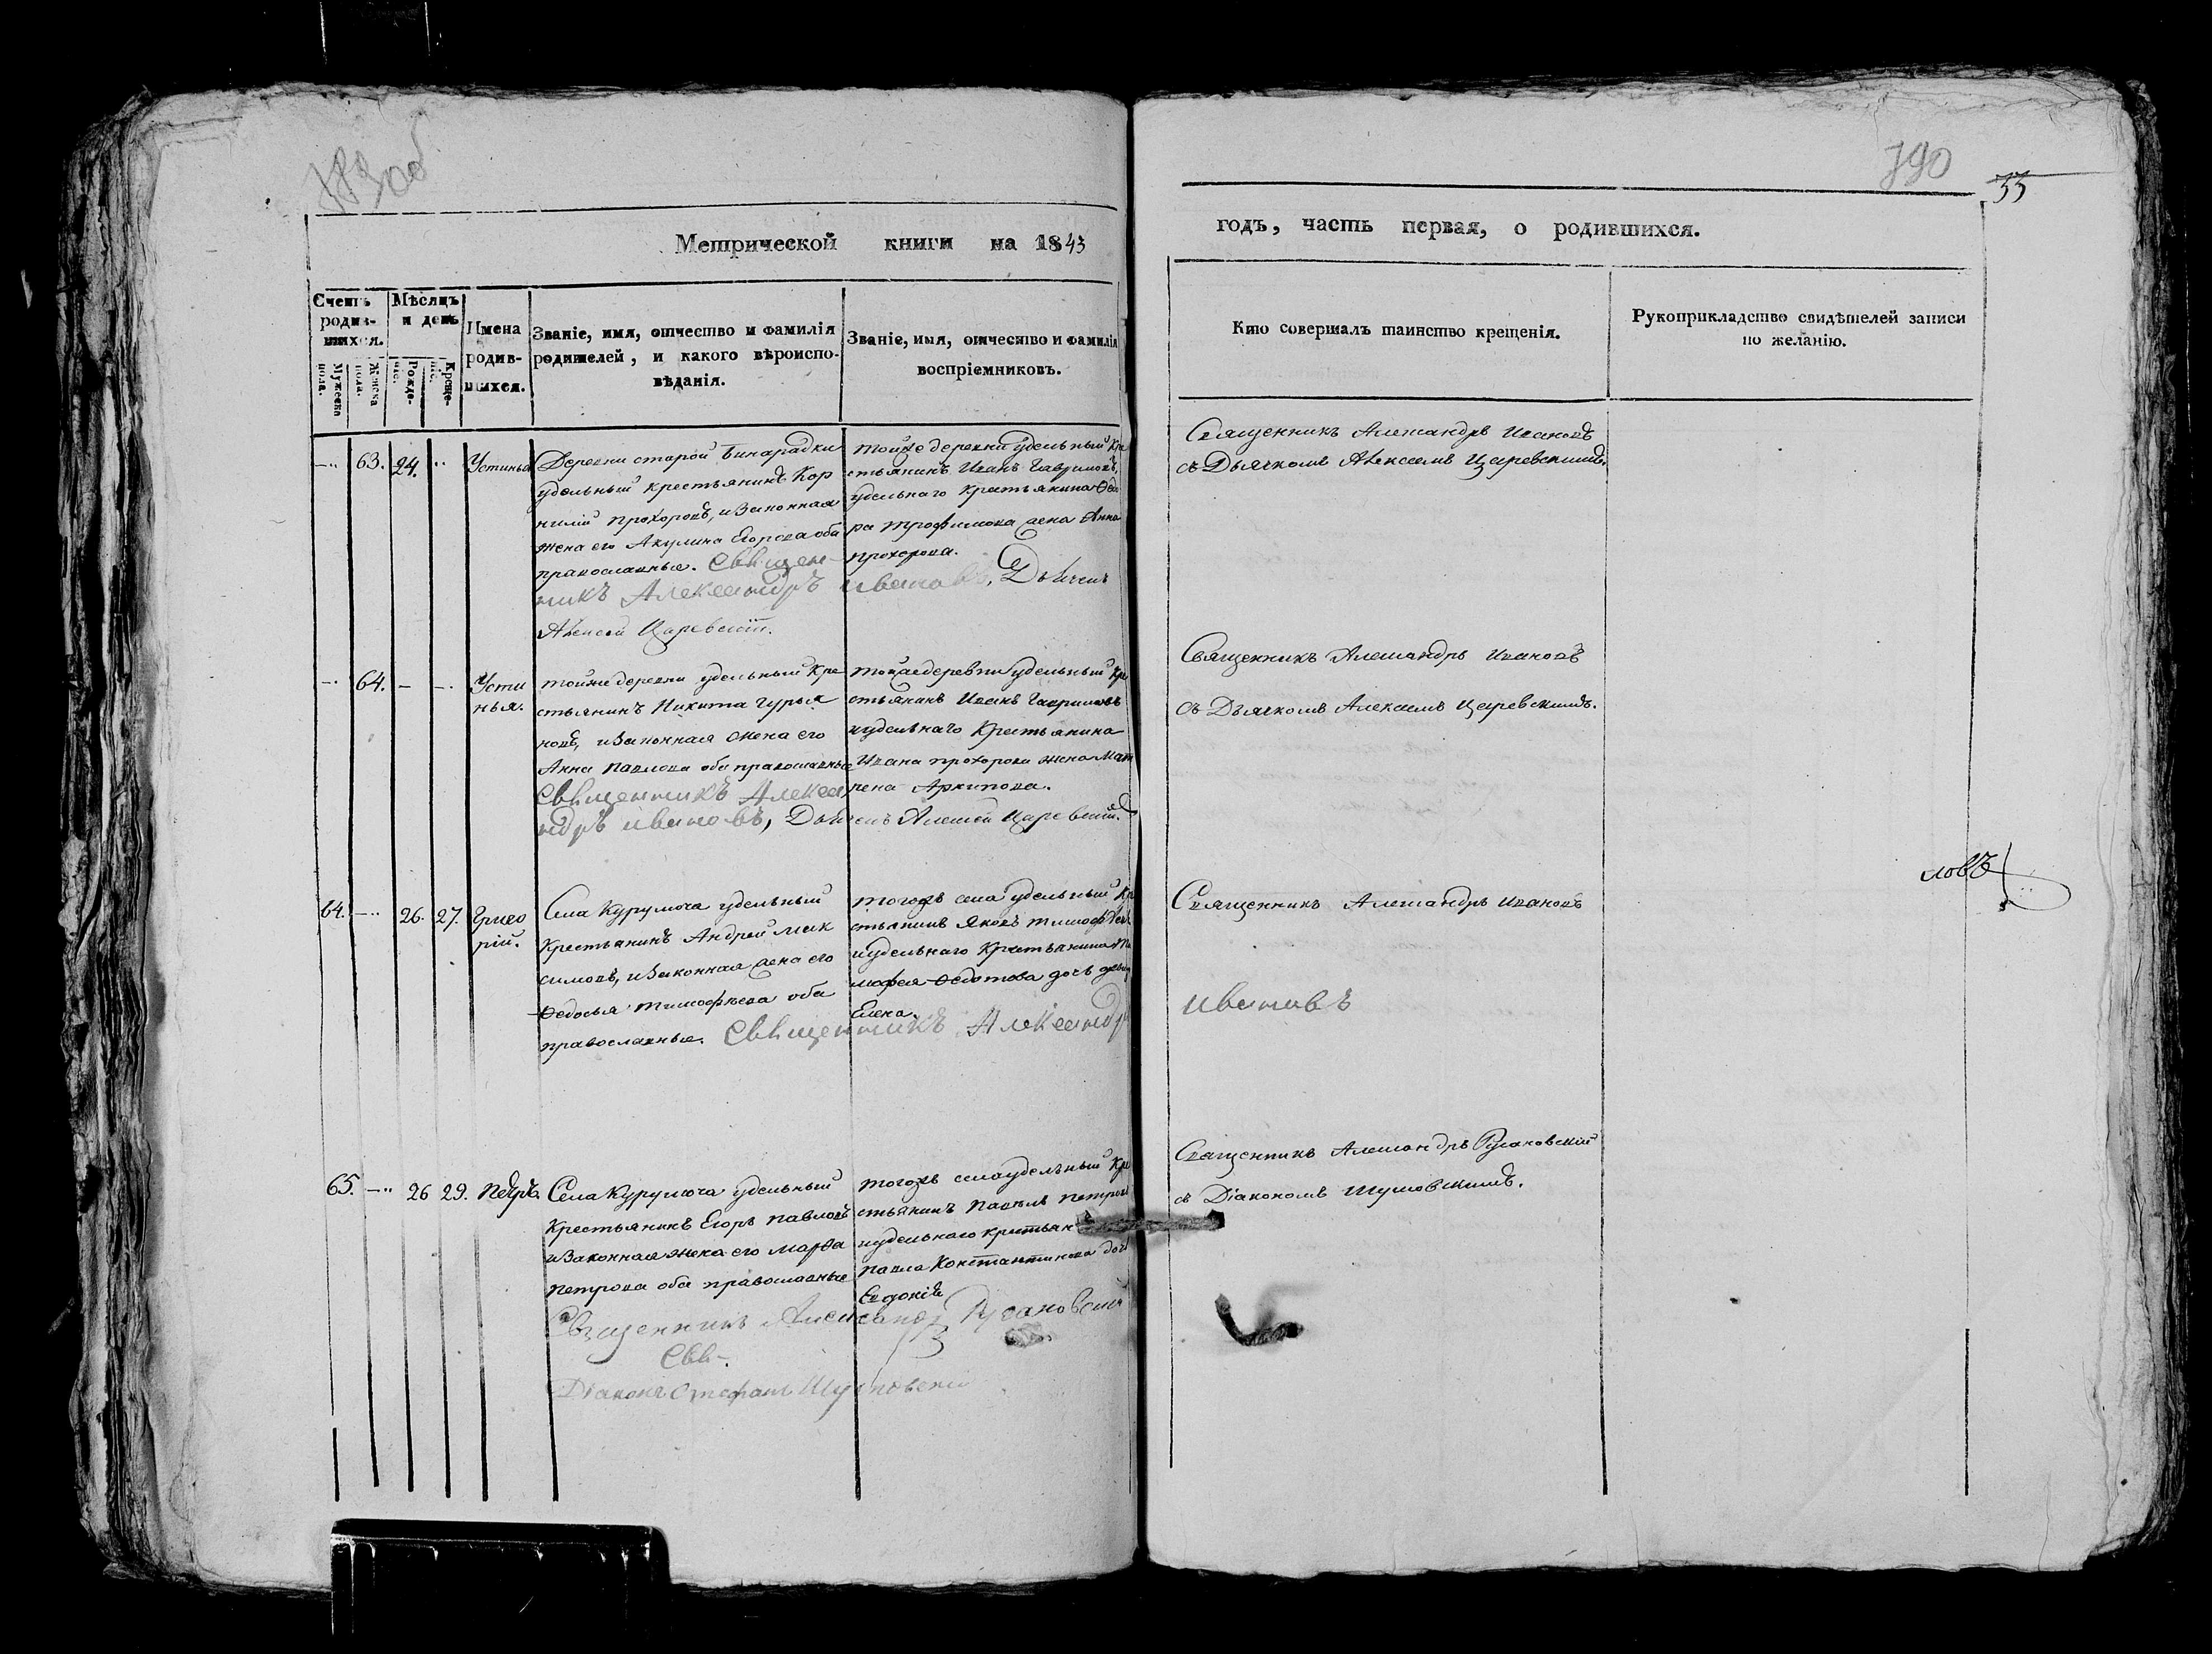 790
33
Метрической книги на 1843
годъ, часть первая, о родившихся.
Счетъ родив-шихся.
Мужеска пола.
Женска пола.
Мѣсяцъ и день
Рожде-ніе.
Креще-ніе.
Имена родив-шихся.
Званіе, имя, отчество и фамилія
родителей, и какого вѣроиспо-
вѣданія.
Званіе, имя, отчество и фамилія
воспріемниковъ.
Кто совершалъ таинство крещенія.
Рукоприкладство свидѣтелей записи
по желанію.
63. 24. Устинья
Деревни старой Бинарадки
удельный крестьянинъ Кор
нилій прохоровъ, и законная
жена его Акулина Егорова оба
православные. Священ-
никъ Александръ Ивановъ, Дьячекъ
Алексей Царевскій.
тойже деревни удельный кре
стьянинъ Иванъ Гавриловъ,
удельнаго крестьянина Ѳедо
ра трофимова жена Анна
прохорова.
Священникъ Александръ Ивановъ
съ Дьячкомъ Алексеемъ Царевскимъ.
64. Усти
нья.
тойже деревни удельный кре
стьянинъ Никита Гурья
новъ, и законная жена его
Анна павлова оба православные
Священникъ Алекса
ндръ Ивановъ, Дьячекъ Алексей Царевскій.
тойже деревни удельный кре
стьянинъ Иванъ Гавриловъ
и удельнаго крестьянина
Ивана прохорова жена Мат
рена Архипова.
Священникъ Александръ Ивановъ
съ Дьячкомъ Алексеемъ Царевскимъ.
64. 26. 27. Григо
рій.
Села Курумоча удельный
крестьянинъ Андрей Мак
симовъ, и законная жена его
Ѳедосья тимофѣева оба
православные. Священникъ Александръ
тогожъ села удельный кре
стьянинъ Яковъ
и удельнаго крестьянина
Ѳедотова дочь
Елена.
Священникъ Александръ Ивановъ
Ивановъ
ловъ
65. 26 29. Петръ.
Села Курумоча удельный
крестьянинъ Егоръ павловъ
и законная жена его Марѳа
петрова оба православные
тогожъ села удельный кре
стьянинъ павелъ петровъ
и удельнаго крестьян
павла Константинова дочь
Евдокія
Священникъ Александръ Русановскій
Свя-.
Діаконъ Стефанъ Шумовскій
Священникъ Александръ Русановскій
съ Діакономъ Шумовскимъ.